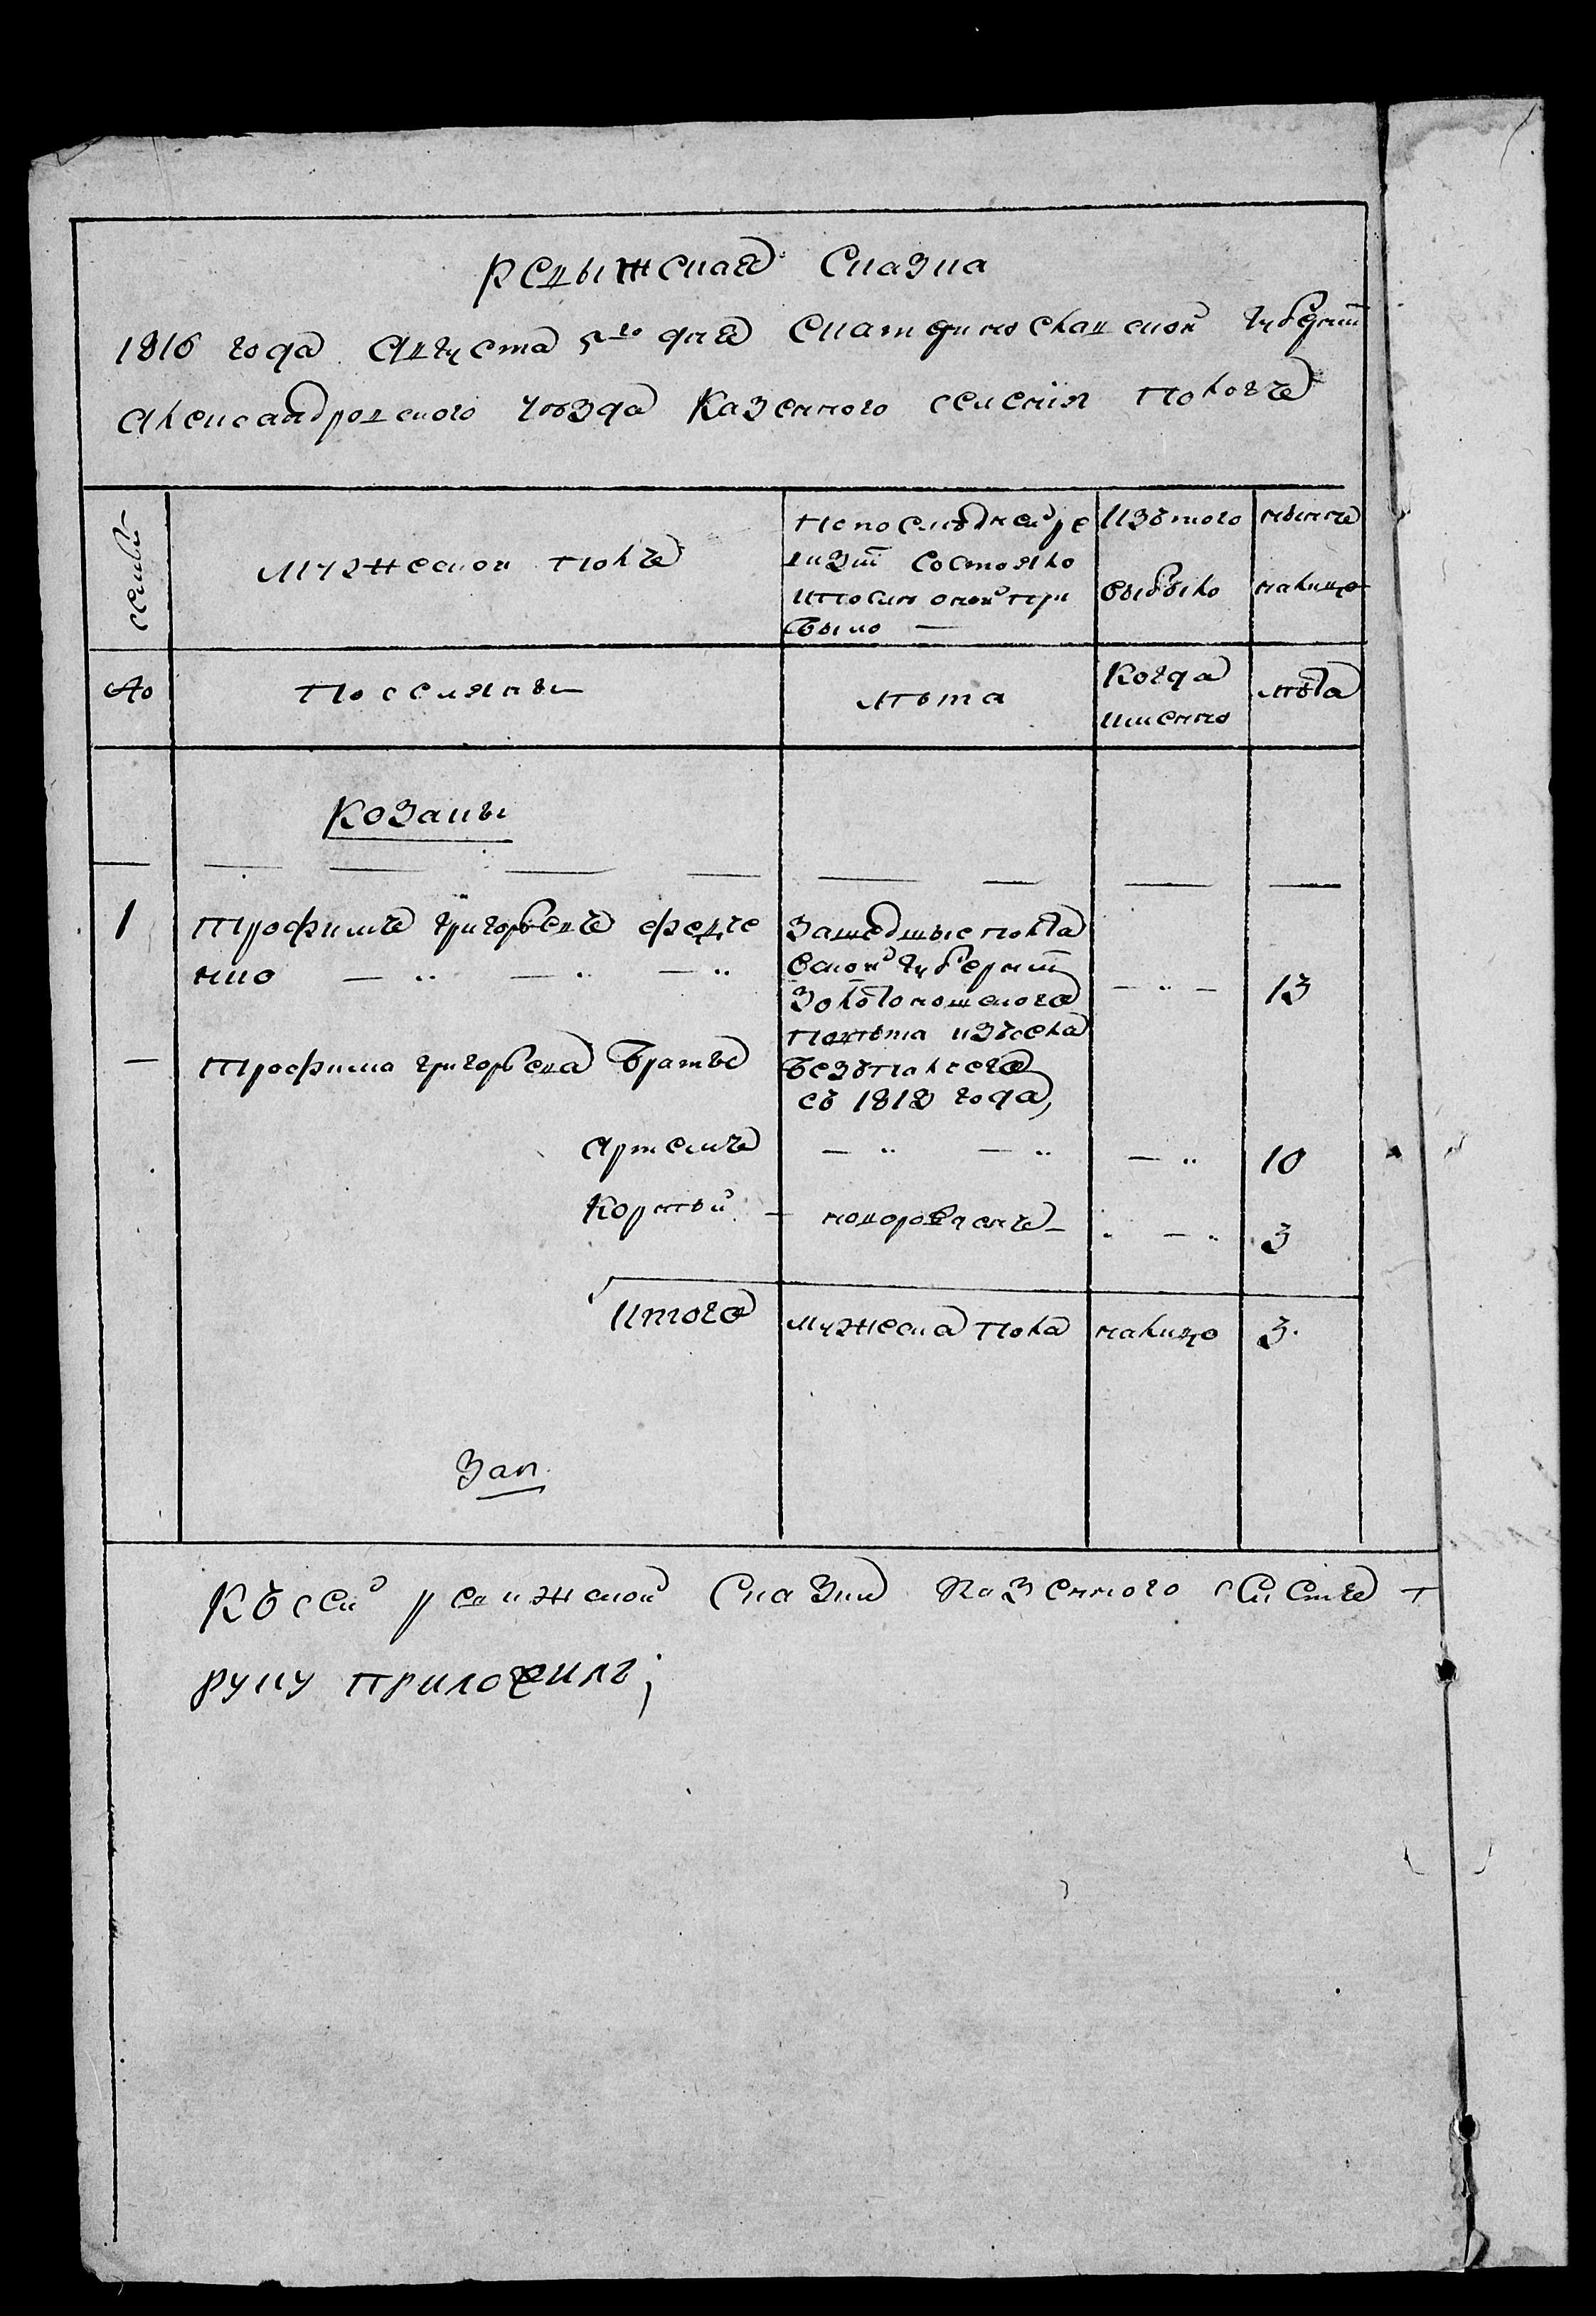 Ревыжская Сказка
1816 года Августа 5го дня Екатеринославской губернии
Александровского уезда Казенного селения Пологъ
семьи
Мужеской полъ
По последней ре
визии состояло
и после оной при
было —
Изъ того
выбыло
ныне
налицо
№
Поселяны
лета
Когда
именно
лета
Козаки
1
Трофимъ Григорьевъ Федче
нко
Зашедшые Полта
вской губернии
Золотоношского
повета изъ села
Безпальчего
съ 1812 года,
13
Трофима Григорьева Братья
Артемъ
10
Корней
новорожденъ
3
Итого
мужеска пола
налицо
3.
Зап.
Къ сей ревижской Сказки Казенного селения П
руку приложилъ;